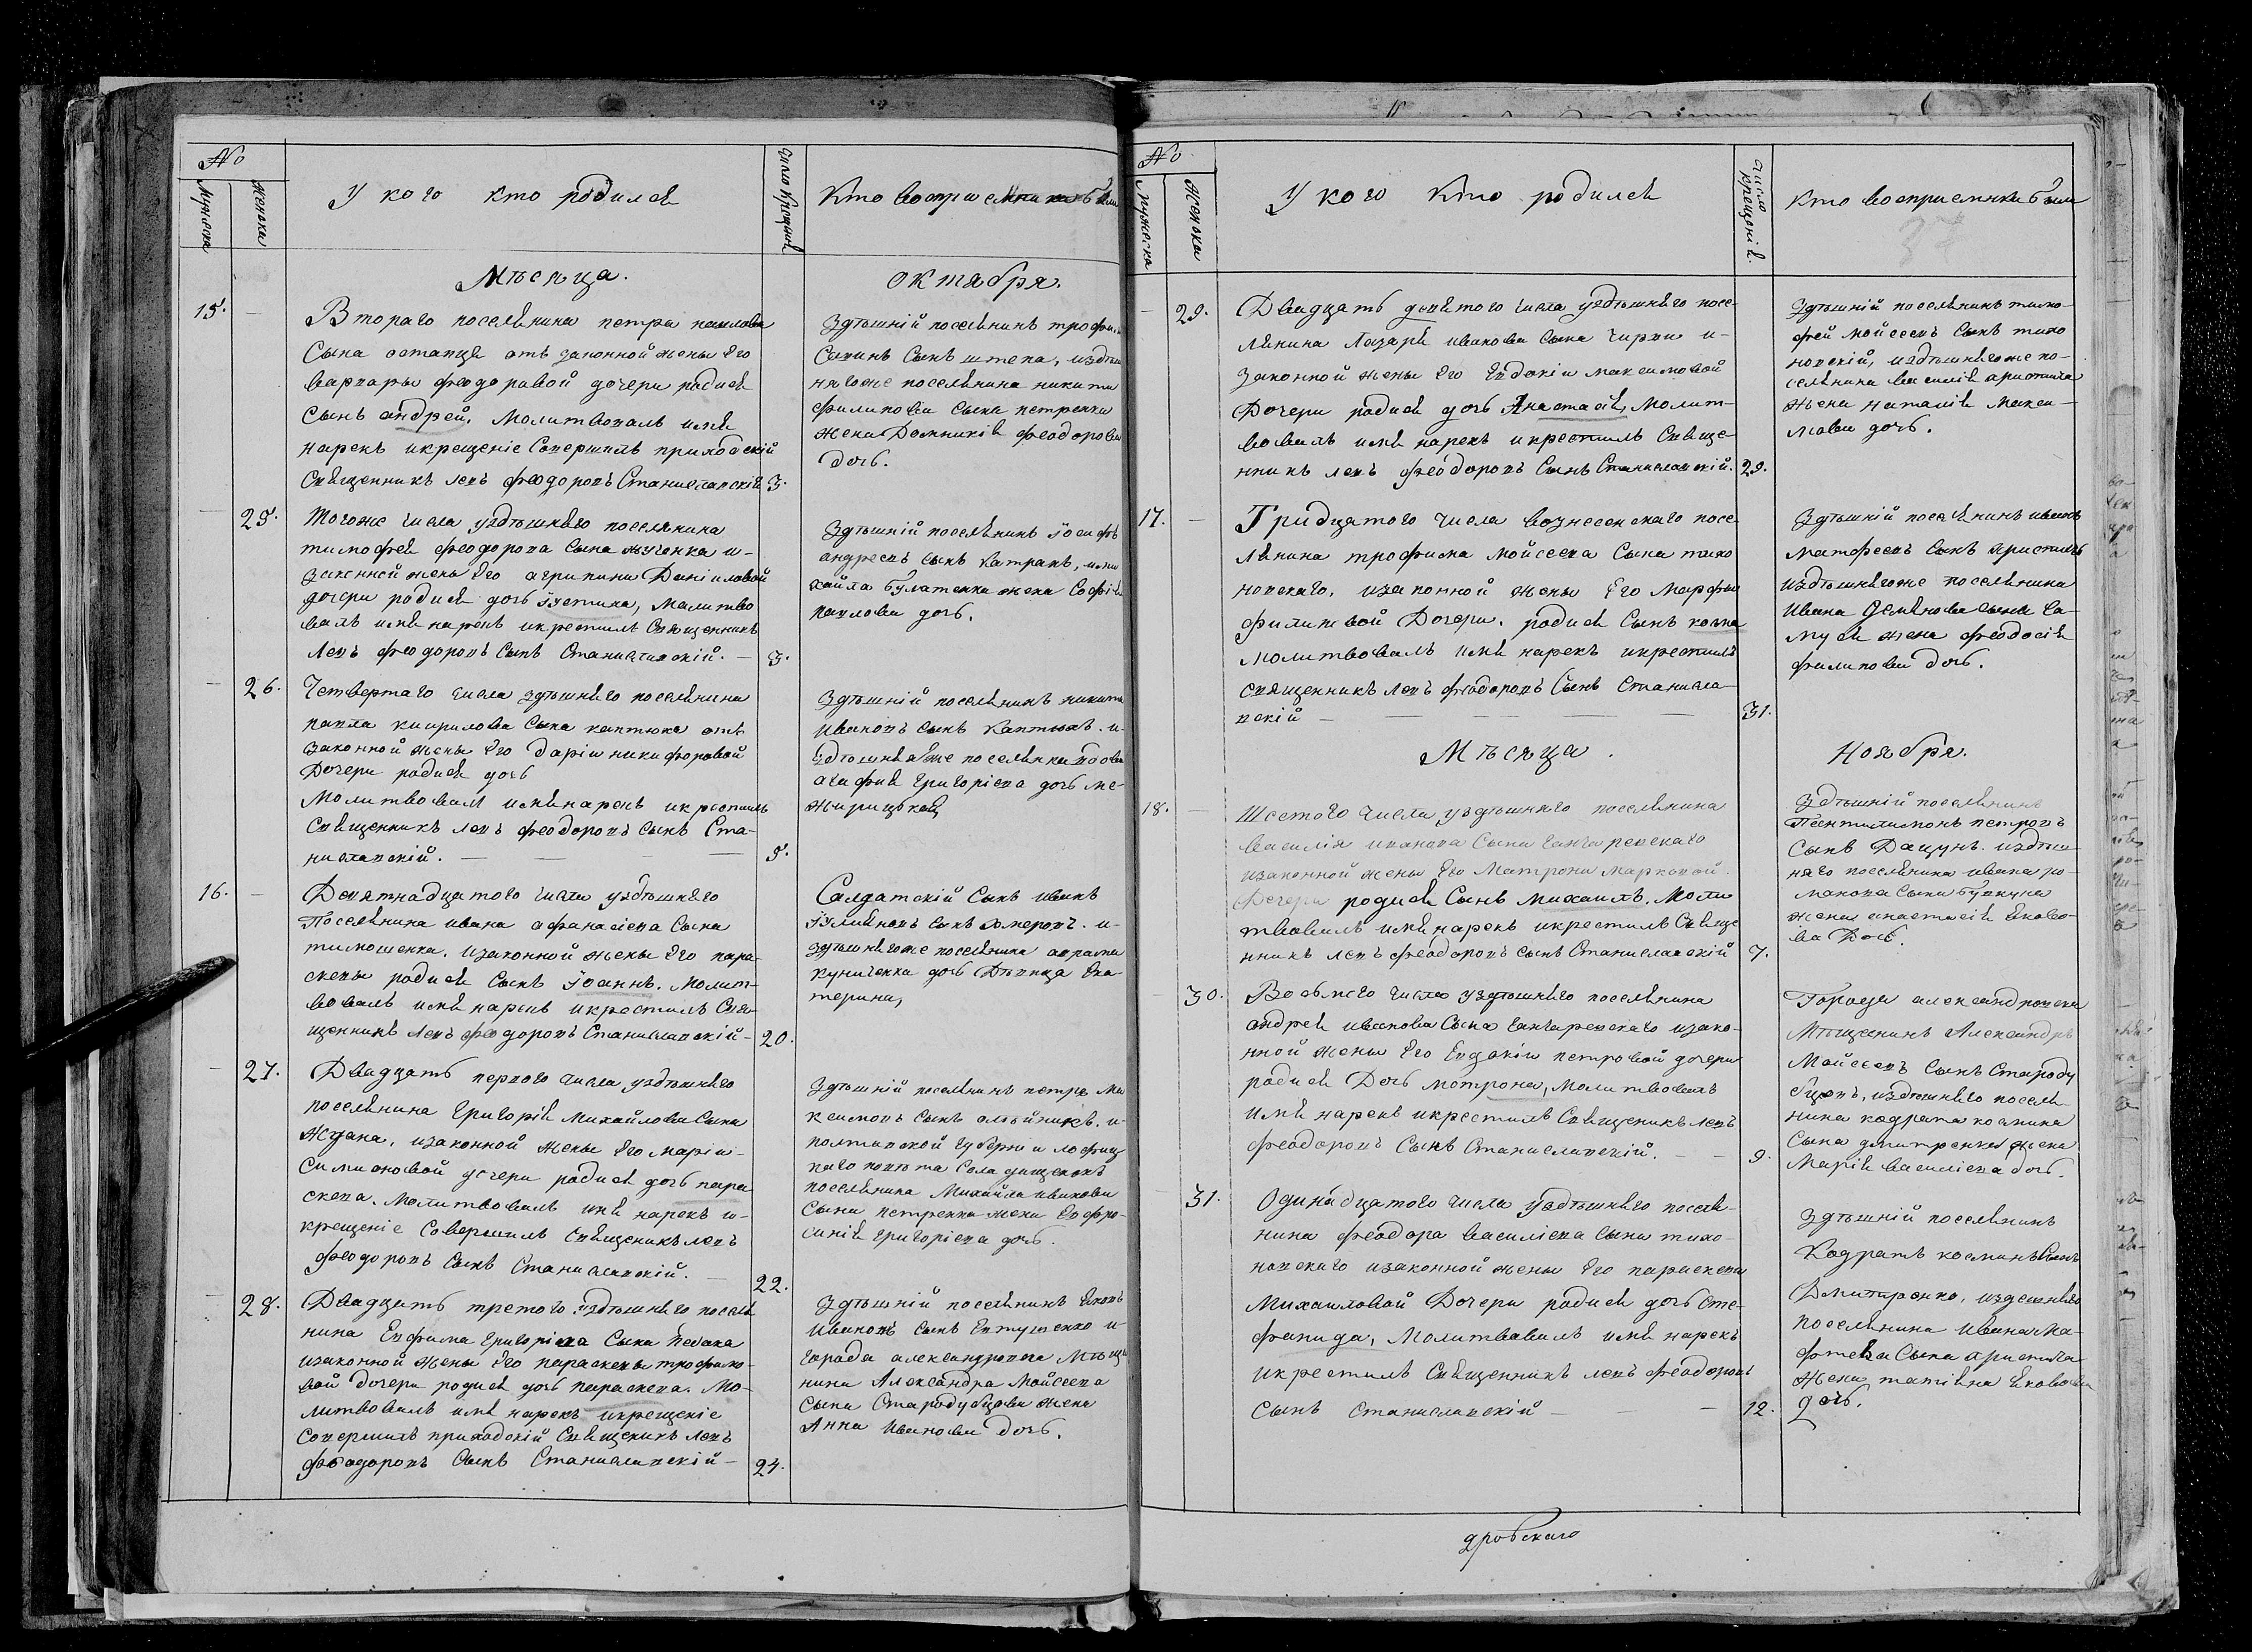 №
Мужеска
Женска
У кого кто родился
число крещенія
Кто воспріемники были
Мѣсяца.
октября.
15.
Втораго поселянина петра павлова
Сына остапця отъ законной жены Его
варвары феодоровой дочери родися
Сынъ андрей, Молитвовалъ имя
нарекъ икрещеніе Совершилъ приходскій
Священникъ левъ феодоровъ Станиславскій
3.
Здѣшній поселянинъ
Савинъ Сынъ штепа, издѣш
нягоже поселянина никити
филипова Сына петренка
жена Домникія феодорова
дочь.
25.
Тогоже числа уздѣшняго поселянина
тимофея феодорова Сына луценка и-
законной жены Его агрипини Даніиловой
дочери родися дочь іустина, Молитво
валъ имя нарекъ икрестилъ Священникъ
Левъ феодоровъ Сынъ Станиславскій.
3.
Здѣшній поселянинъ іосифъ
андреевъ Сынъ Катранъ, ими
хайла булатенка жена Софія
павлова дочь.
26.
Четвертаго числа здѣшняго поселянина
павла кирилова Сына каптюка отъ
законной жены Его даріи никифоровой
Дочери родися дочь
Молитвовалъ имя нарекъ икрестилъ
Священникъ левъ феодоровъ Сынъ Ста-
ниславскій.
5.
Здѣшній поселянинъ никита
Ивановъ Сынъ Каптюкъ. и-
здѣшняяже поселянка вдова
агафия Григоріева дочь ме-
жирицкая
16.
Девятнадцатого числа уздѣшняго
Поселянина ивана афанасіева Сына
тимошенка. изаконной жены Его пара-
скевы родися Сынъ іоаннъ. Молит-
вовалъ имя нарекъ икрестилъ Свя-
щенникъ Левъ феодоровъ Станиславскій-
20.
Салдатскій Сынъ иванъ
и-
здѣшнягоже поселянина аврама
куниченка дочь Дѣвица Ека-
терина,
27.
Двадцать первого числа уздѣшняго
поселянина Григорія Михайлова Сына
изаконной жены Его маріи
Симионовой дочери родися дочь пара
скева. Молитвовалъ имя нарекъ и-
крещеніе Совершилъ Священикъ левъ
феодоровъ Сынъ Станиславскій.
22.
Здѣшній поселянинъ петръ Ма
ксимовъ Сынъ олѣйникъ. и-
полтавской Губерніи лохвиц
каго повѣта Села
поселянина Михайла иванова
Сына петренка жена Евфро-
синія Григоріева дочь.
28.
Двадцать третого уздѣшняго поселя
нина Евфима Григоріева Сына
изаконной жены Его параскевы трофимо-
вой дочери родися дочь параскева. Мо-
литвовалъ имя нарекъ икрещеніе
Совершилъ приходскій Священикъ левъ
феодоровъ Сынъ Станиславскій-
24.
Здѣшній поселянинъ Яковъ
Ивановъ Сынъ Евтушенко и
Города александровска Мѣща
нина Александра Мойсеева
Сына Стародубцова жена
Анна Иванова дочь.
№
Мужеска
Женска
У кого кто родился
число крещенія.
Кто воспріемники были
37
29.
Двадцать девятого числа уздѣшняго посе-
лянина Лазаря иванова Сына Чирки и-
законной жены Его Евдокіи максимовой
Дочери родися дочь Анастасія, Молит-
вовалъ имя нарекъ икрестилъ Свяще-
нникъ левъ феодоровъ Сынъ Станиславскій.
29.
Здѣшній поселянинъ тимо-
фей мойсеевъ Сынъ тихо
новскій, издѣшнягоже по-
селянина василія
жена наталія Макси-
мова дочь.
17.
Тридцатого числа вознесенскаго посе-
лянина трофима мойсеева Сына тихо
новскаго, изаконной жены Его Марфы
филиповой Дочери. родися Сынъ козма
молитвовалъ имя нарекъ икрестилъ
священникъ левъ феодоровъ Сынъ Станисла-
вскій
31.
Здѣшній поселянинъ иванъ
матфеевъ Сынъ
издѣшнягоже поселянина
Ивана Семенова Сына Са-
муся жена феодосія
филипова дочь.
Мѣсяца.
Ноября.
18.
Шестого числа уздѣшняго поселянина
Василія иванова Сына Гангаревскаго
изаконной жены Его Матрони Марковой
Дочери родися Сынъ Михаилъ. Моли
твовалъ имя нарекъ икрестилъ Свяще
нникъ левъ феодоровъ Сынъ Станиславскій
7.
Здѣшній поселянинъ
Пантилимонъ петровъ
Сынъ Дацунъ. издѣш-
няго поселянина ивана ро-
манова Сына
жена анастасія Яково-
ва Дочь.
30.
Восьмого числа уздѣшняго поселянина
андрея иванова Сына Гангаревскаго изако-
нной жены Его Евдокіи петровой дочери
родися Дочь мотрона, Молитвовалъ
имя нарекъ икрестилъ Священикъ левъ
феодоровъ Сынъ Станиславскій.
9.
Города александровска
Мѣщенинъ Александръ
Мойсеевъ Сынъ Староду
бцовъ, издѣшняго поселя
нина кодрата козмина
Сына дмитренка жена
Марія василіева дочь.
31.
Одинадцатого числа уздѣшняго поселя-
нина феодора василіева Сына тихо-
новскаго изаконной жены Его параскевы
Михаиловой Дочери родися дочь Сте-
фанида, Молитвовалъ имя нарекъ
икрестилъ Священникъ левъ феодоровъ
Сынъ Станиславскій
12.
Здѣшній поселянинъ
Кодратъ козминъ Сынъ
Дмитренко, издешняго
поселянина ивана Ма-
фтея Сына
жена татіяна Яковлева
дочь.
дровскаго